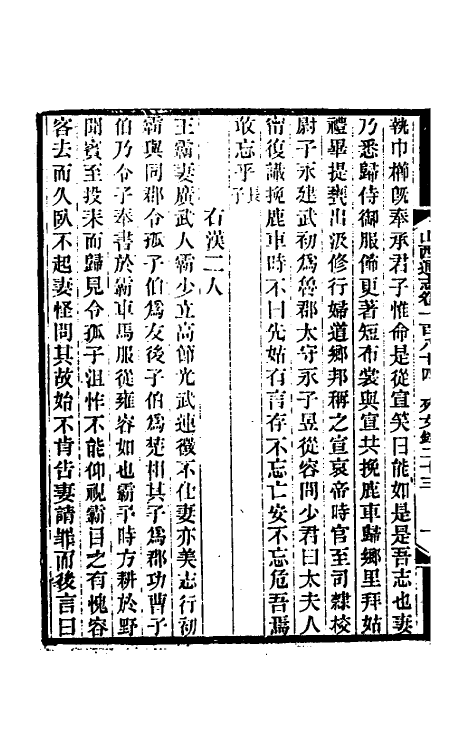 山西通志卷一百八十四 列女錄二十三 一
執巾櫛旣奉承君子惟命是從宣笑曰能如是是吾志也妻
乃悉歸侍御服飾更著短布裳與宣共挽鹿車歸鄉里拜姑
禮畢提甕出汲修行婦道鄉邦稱之宣哀帝時官至司隸校
尉子永建武初爲魯郡太守永子昱從容問少君曰太夫人
甯復識挽鹿車時不曰先姑有言存不忘亡安不忘危吾焉
敢忘乎長子
右漢二人
王霸妻廣武人霸少立高節光武連徵不仕妻亦美志行初
霸與同郡令孤子伯爲友後子伯爲楚相其子爲郡功曹子
伯乃令子奉書於霸車馬服從雍容如也霸子時方耕於野
聞賓至投耒而歸見令孤子沮怍不能仰視霸目之有愧容
客去而久臥不起妻怪問其故始不肯告妻請罪而後言曰